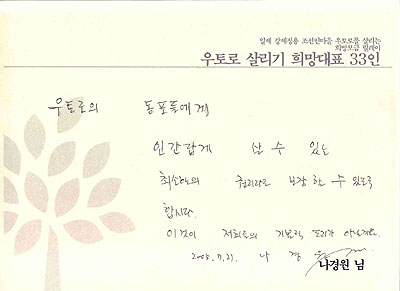 일제 강제징용 조선인마을 우토로를 살리는
희망모금 릴레이
우토로 살리기 희망대표 33인
우토로의 동포들에게
인간답게 살 수 있는
최소한의 권리라도 보장 할 수 있도록
합시다.
이것이 저희들의 기본적 도리가 아닐까요.
2005. 7. 21. 나 경 원
나경원 님